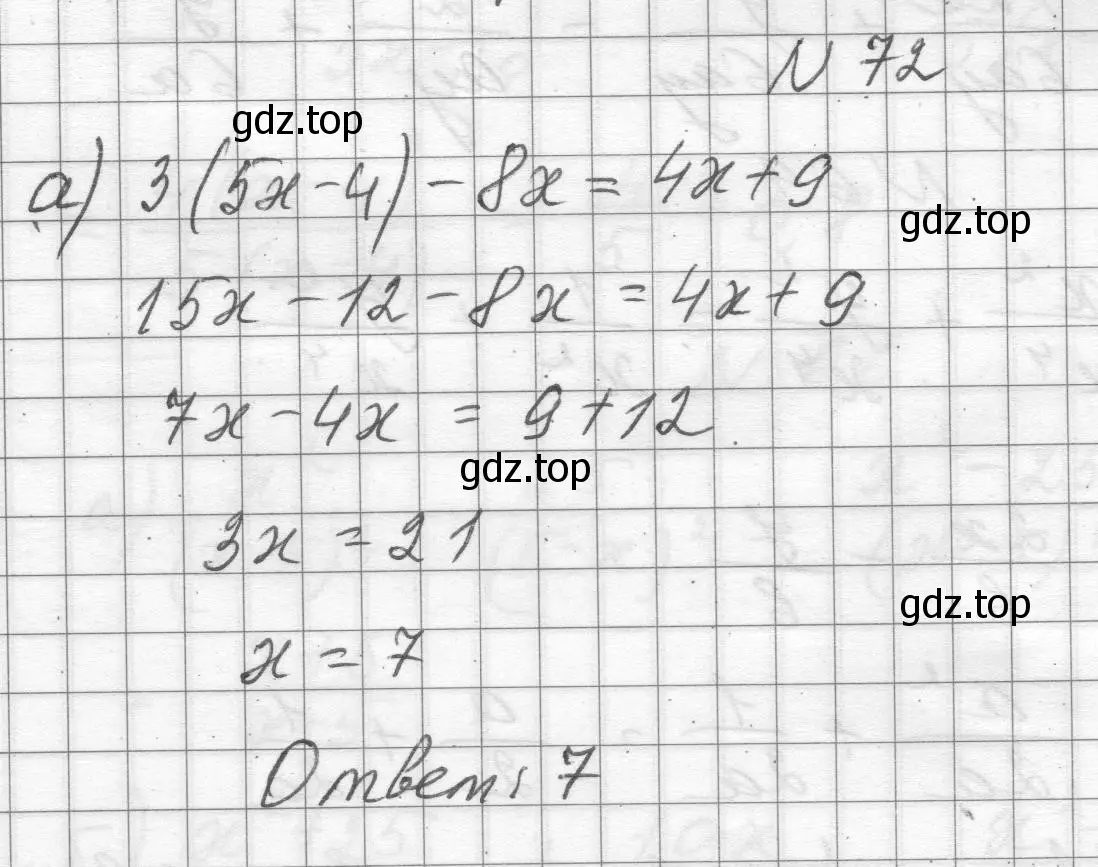 N 72
gdz.top
а) 3(5x-4)-8x=4x+9
gdz.top
15x-12-8x=4x+9
7x-4x=9+12
gdz.top
3x=21
gdz.top
x=7
Ответ: 7